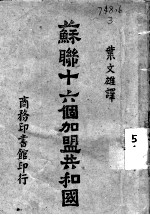 748.6
3
葉文雄譯
蘇聯十六個加盟共和國
商務印書館印行
5